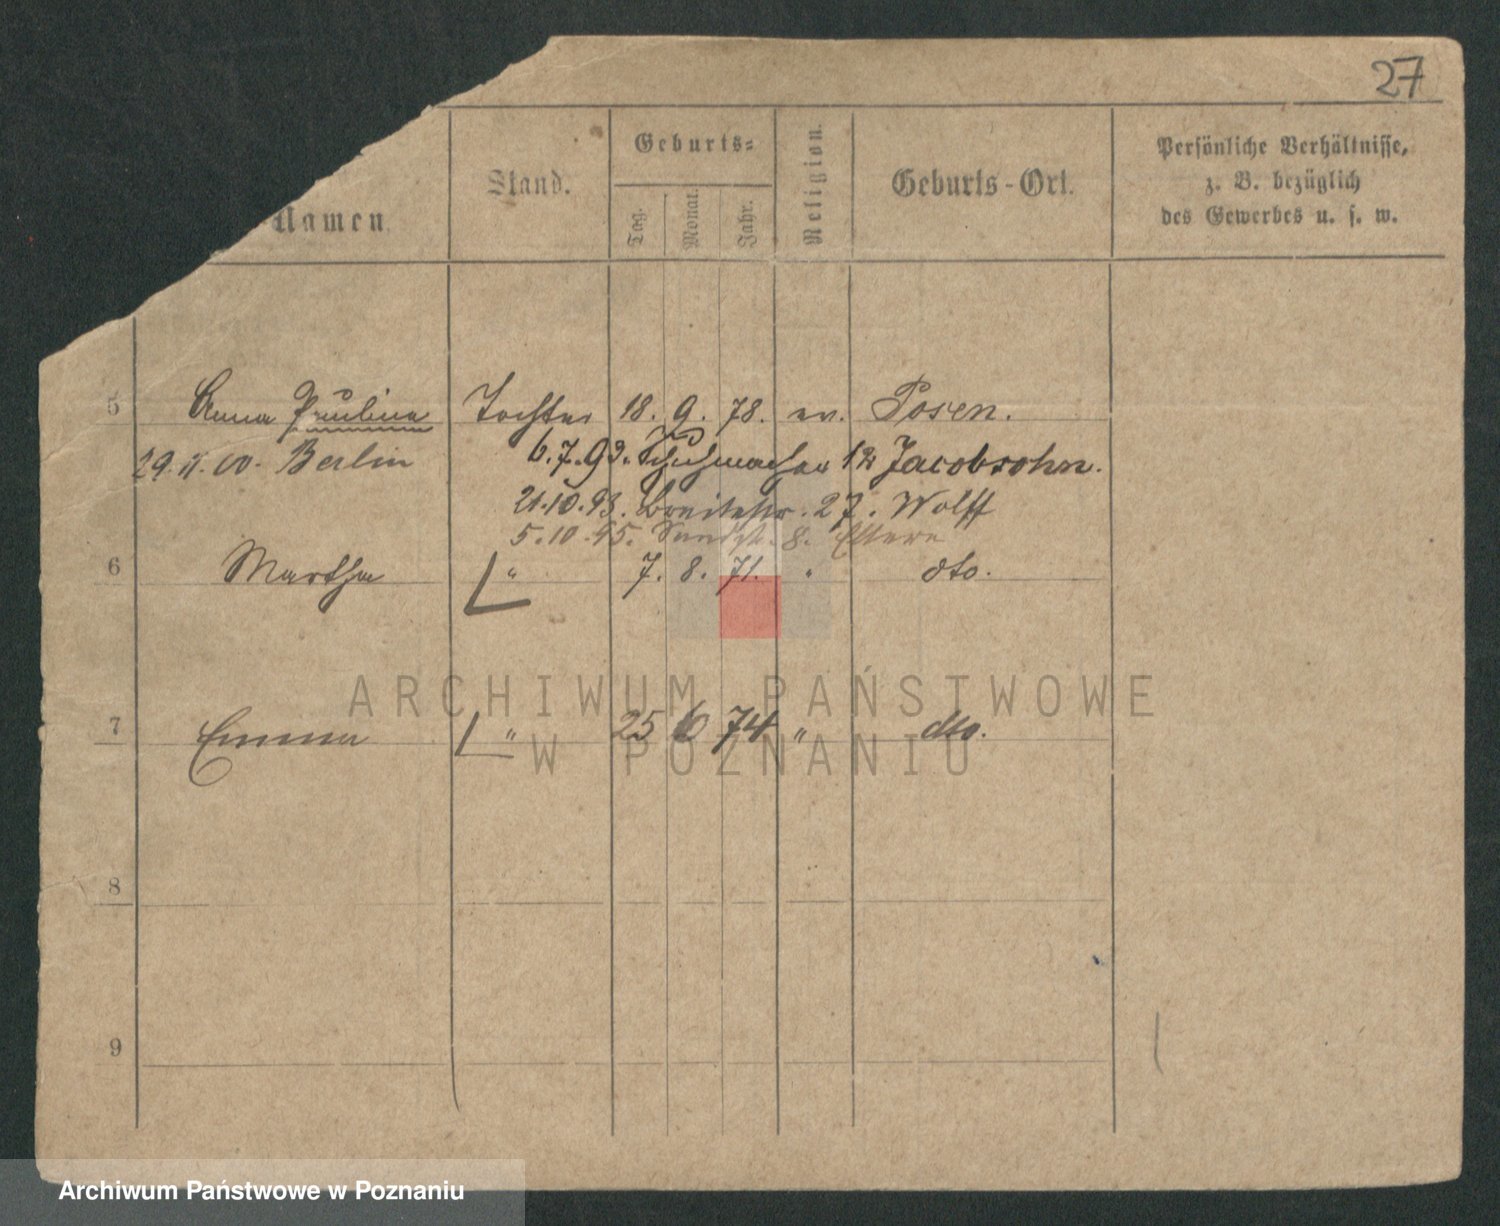 27
Namen.
Stand.
Geburts=
Tag.
Monat.
Jahr.
Religion.
Geburts-Ort.
Persönliche Verhältnisse,
z. B. bezüglich
des Gewerbes u. s. w.
5 Anna Pauline Tochter 18. 9. 78. ev. Posen.
29. 11. 00. Berlin 6.7.93. Schuhmacher 12 Jacobsohn.
21.10.93. Breitestr. 27. Wolff
5.10.95. Sandstr. 8. Eltern
6 Martha " 7. 8. 71. " dto.
7 Emma " 25 6 74 " dto.
8
9
ARCHIWUM PAŃSTWOWE
W POZNANIU
Archiwum Państwowe w Poznaniu